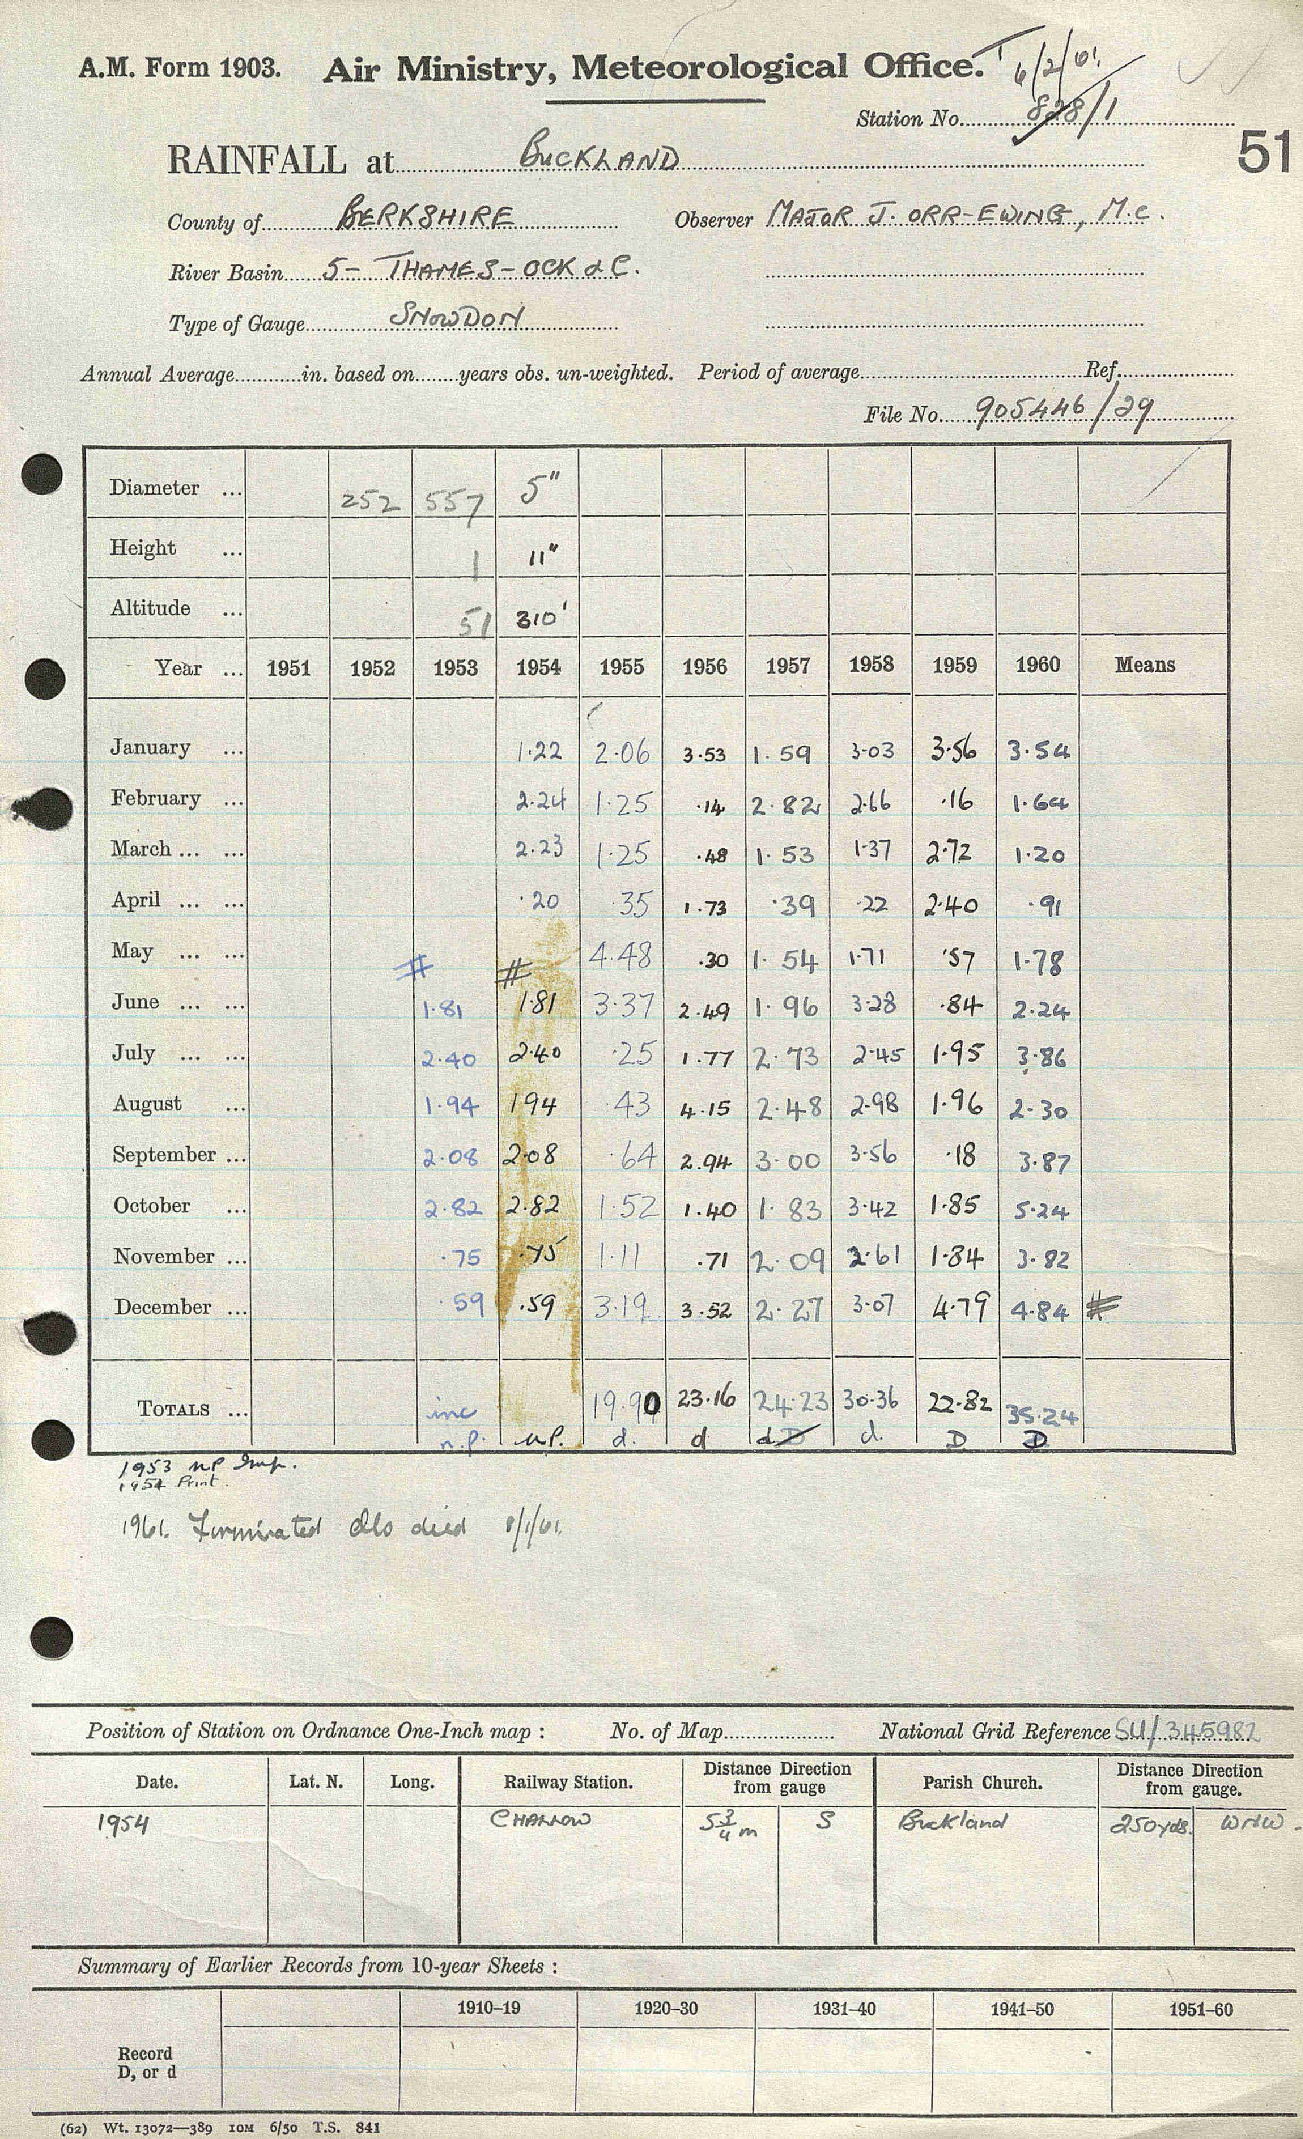 A.M. Form 1903. Air Ministry, Meteorological Office. T 6/2/61.
Station No. 828/1
51
RAINFALL at BUCKLAND
County of BERKSHIRE Observer MAJOR J. ORR-EWING, M.C.
River Basin 5 - THAMES - OCK &C.
Type of Gauge SNOWDON
Annual Average in. based on years obs. un-weighted. Period of average Ref.
File No. 905446/29
Diameter ... 252 557 5"
Height ... 1 11"
Altitude ... 51 310'
Year ... 1951 1952 1953 1954 1955 1956 1957 1958 1959 1960 Means
January ... 1.22 2.06 3.53 1.59 3.03 3.56 3.54
February ... 2.24 1.25 .14 2.82 2.66 .16 1.64
March ... ... 2.23 1.25 .48 1.53 1.37 2.72 1.20
April ... ... .20 .35 1.73 .39 .22 2.40 .91
May ... ... # # 4.48 .30 1.54 1.71 .57 1.78
June ... ... 1.81 1.81 3.37 2.49 1.96 3.28 .84 2.24
July ... ... 2.40 2.40 .25 1.77 2.73 2.45 1.95 3.86
August ... 1.94 1.94 .43 4.15 2.48 2.98 1.96 2.30
September ... 2.08 2.08 .64 2.94 3.00 3.56 .18 3.87
October ... 2.82 2.82 1.52 1.40 1.83 3.42 1.85 5.24
November ... .75 .75 1.11 .71 2.09 2.61 1.84 3.82
December ... .59 .59 3.19 3.52 2.27 3.07 4.79 4.84 #
TOTALS ... inc 19.90 23.16 24.23 30.36 22.82 35.24
n.p. n.p. d. d d D d. D D
1953 NP Imp.
1954 Print.
1961. Terminated Obs died 8/1/61.
Position of Station on Ordnance One-Inch map : No. of Map National Grid Reference SU/345982
Date. Lat. N. Long. Railway Station. Distance Direction from gauge Parish Church. Distance Direction from gauge.
1954 CHALLOW 5 3/4 m S Buckland 250yds. WNW.
Summary of Earlier Records from 10-year Sheets :
1910–19 1920–30 1931–40 1941–50 1951–60
Record
D, or d
(62) Wt. 13072—389 10M 6/50 T.S. 841